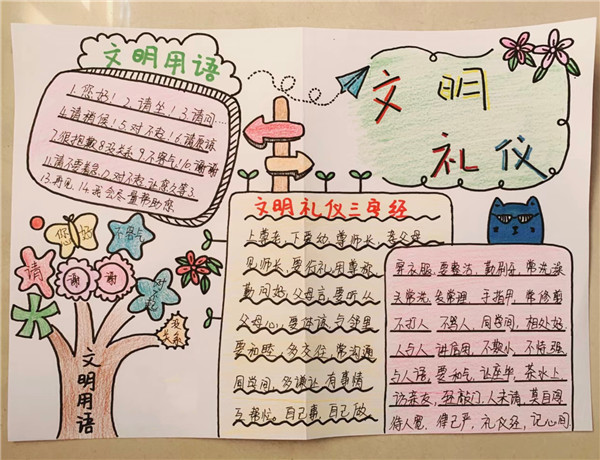 文明用语
1.您好！2.请坐！3.请问…
4.请稍候！5.对不起！6.请原谅
7.很抱歉8.没关系.9.不客气10.谢谢
11.请不要着急12.对不起，让您久等了
13.再见.14.我会尽量帮助您
文明
礼仪
您好
不客气
请
谢
谢
对不起
没关系
文明用语
文明礼仪三字经
上尊老，下爱幼，尊师长，孝父母
见师长，要行礼，用尊称
勤问好，父母言，要听从
父母心，要体谅，与邻里
要和睦，多交往，常沟通
同学间，多谦让，有事情
互帮忙，自己事，自己做
穿衣服，要整洁，勤刷牙，常洗澡
头常洗，发常理，手指甲，常修剪
不打人，不骂人，同学间，相处好
人与人，讲信用，不欺小，不恃强
与人语，要和气，让座中，茶水上
访亲友，轻敲门，人未请，莫自闯
待人宽，律己严，礼仪经，记心间